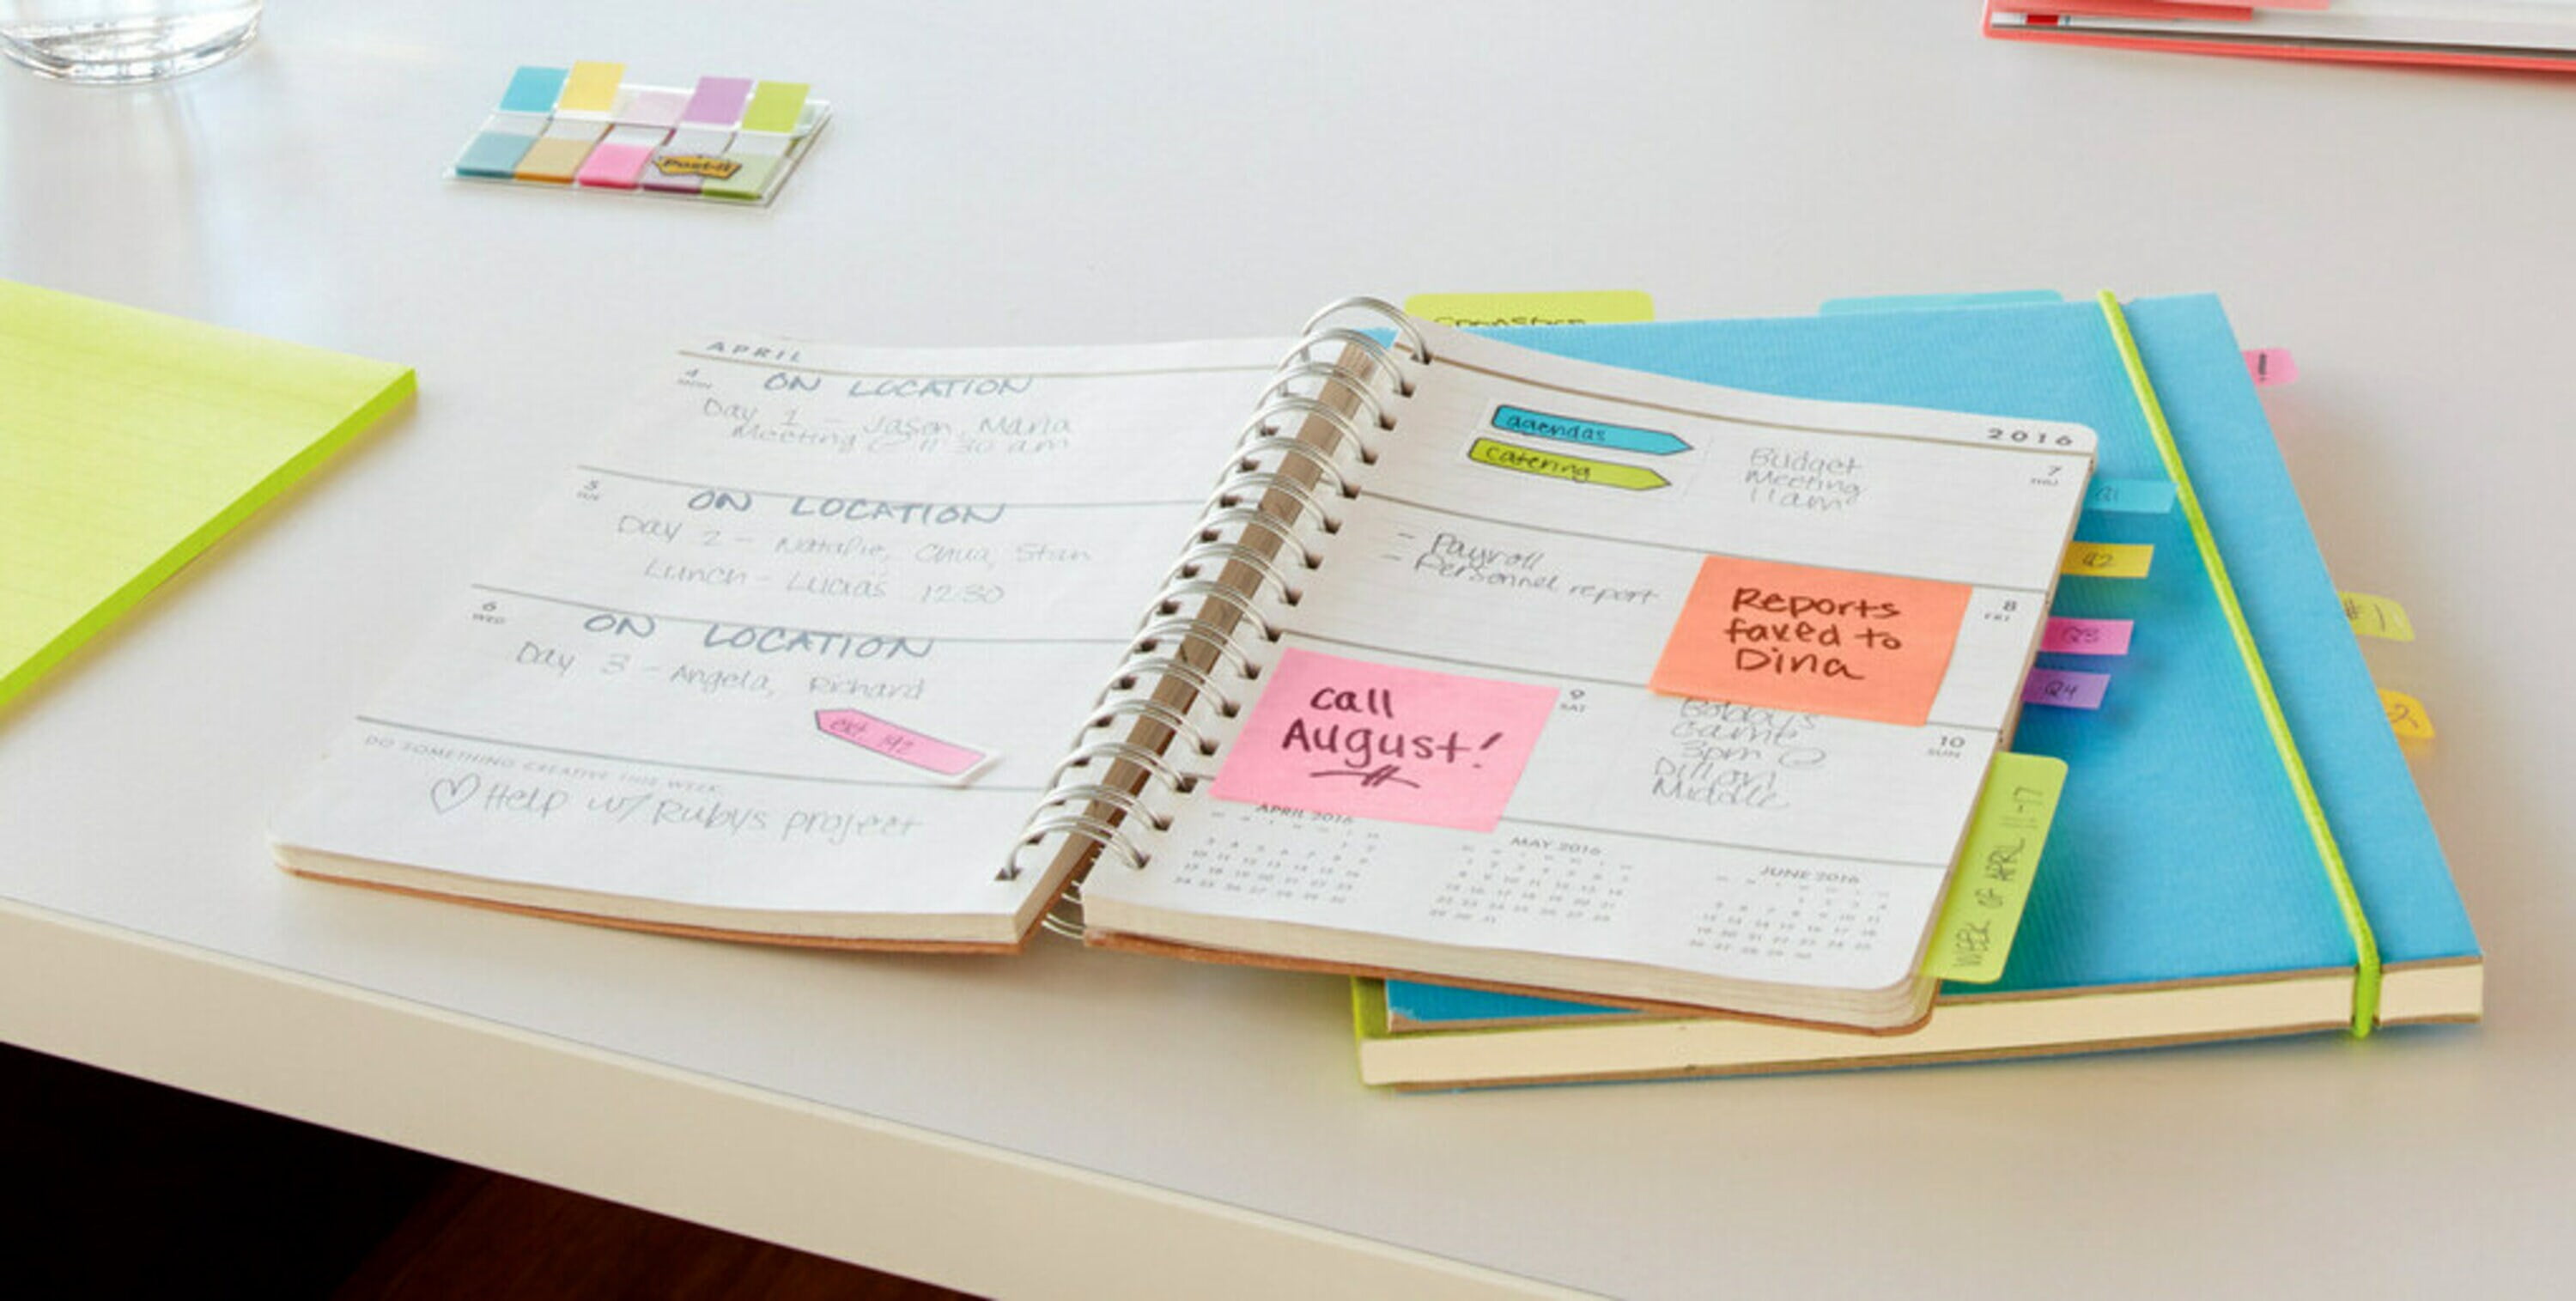 Post-it
APRIL
4
MON
ON LOCATION
Day 1 - Jason, Maria
Meeting @ 11:30 am
5
TUE
ON LOCATION
Day 2 - Natalie, Chua, Stan
Lunch - Lucias 12:30
6
WED
ON LOCATION
Day 3 - Angela, Richard
ext 142
DO SOMETHING CREATIVE THIS WEEK
Help w/ Rubys project
2016
agendas
catering
Budget
Meeting
11am
7
THU
- Payroll
- Personnel report
Reports
faxed to
Dina
8
FRI
call
August!
9
SAT
Bobby's
Game
3pm @
Dillon
Middle
10
SUN
APRIL 2016
MAY 2016
JUNE 2016
Q1
Q2
Q3
Q4
WEEK OF APRIL 11-17
#1
2